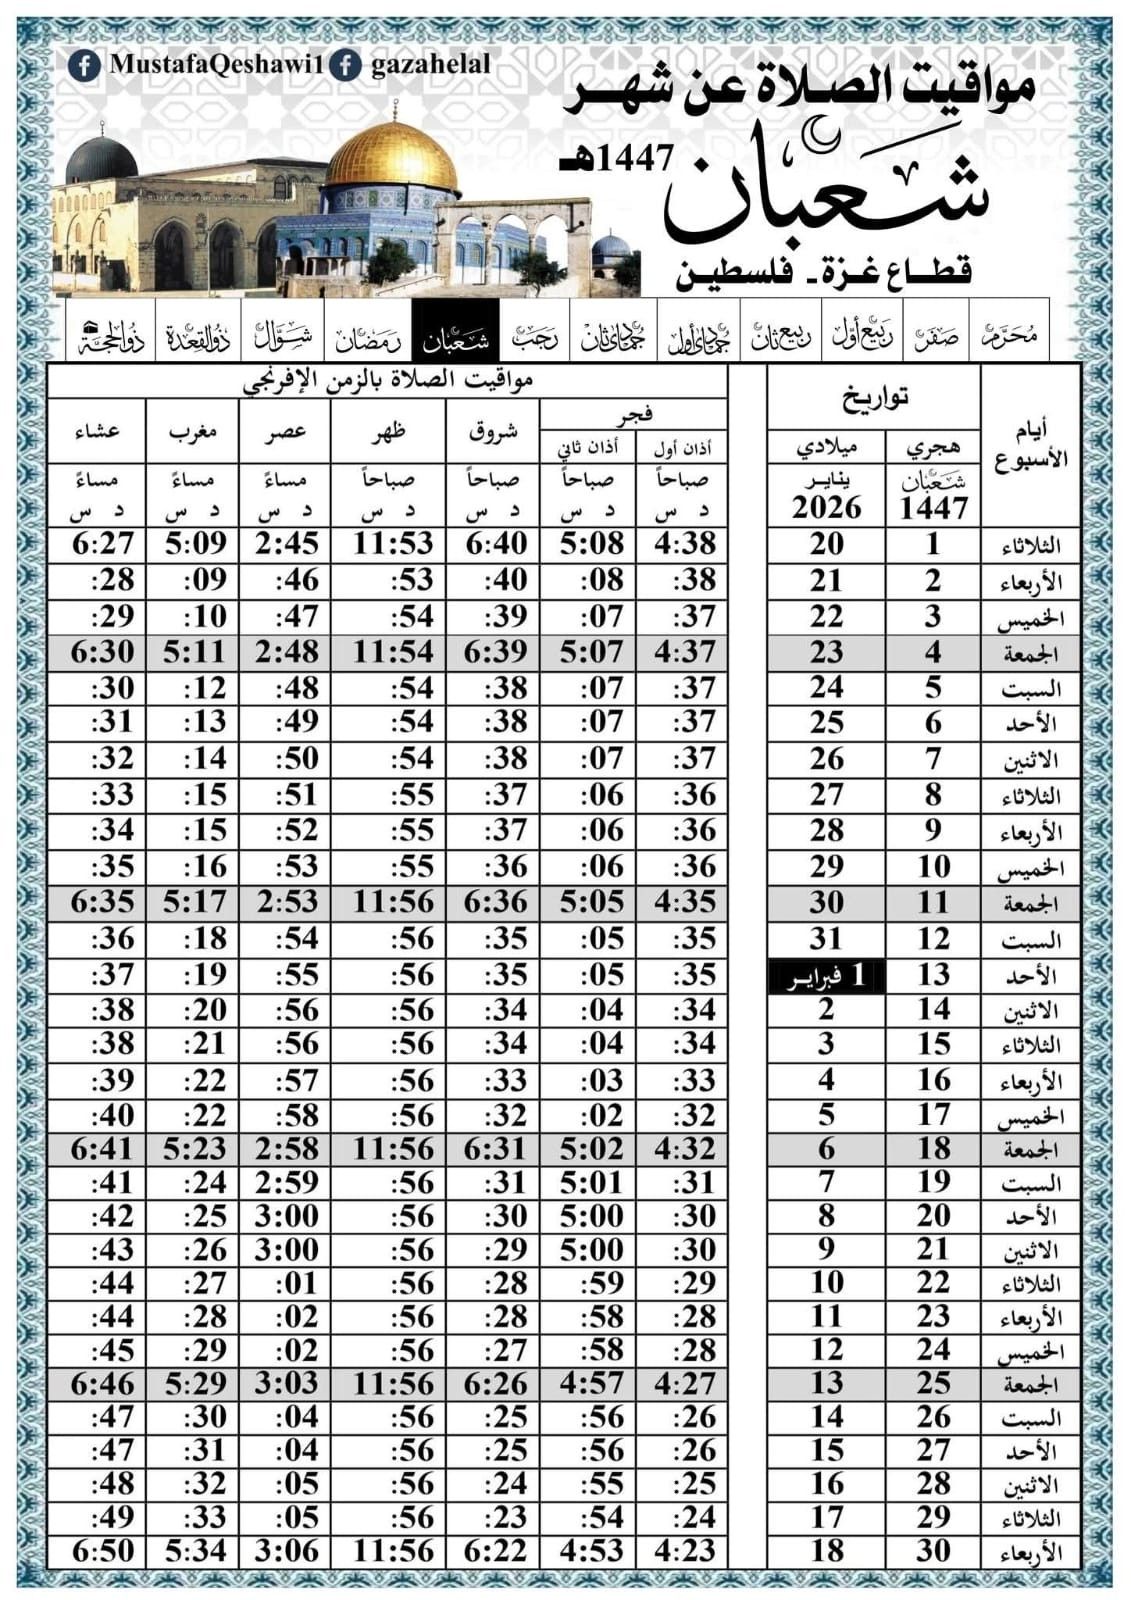 MustafaQeshawi1 gazahelal
مواقيت الصلاة عن شهر
شعبان
1447هـ
قطاع غزة - فلسطين
مُحَرَّم صَفَر رَبيع أوّل ربيع ثان جُمادى أول جُمادى ثان رَجَب شَعبَان رَمَضان شَوَّال ذُوالقِعْدَة ذُوالحِجَّة
أيام الأسبوع تواريخ مواقيت الصلاة بالزمن الإفرنجي
هجري ميلادي فجر شروق ظهر عصر مغرب عشاء
أذان أول أذان ثاني
شعبان 1447 يناير 2026 صباحاً صباحاً صباحاً صباحاً مساءً مساءً مساءً
د س د س د س د س د س د س د س
الثلاثاء 1 20 4:38 5:08 6:40 11:53 2:45 5:09 6:27
الأربعاء 2 21 :38 :08 :40 :53 :46 :09 :28
الخميس 3 22 :37 :07 :39 :54 :47 :10 :29
الجمعة 4 23 4:37 5:07 6:39 11:54 2:48 5:11 6:30
السبت 5 24 :37 :07 :38 :54 :48 :12 :30
الأحد 6 25 :37 :07 :38 :54 :49 :13 :31
الاثنين 7 26 :37 :07 :38 :54 :50 :14 :32
الثلاثاء 8 27 :36 :06 :37 :55 :51 :15 :33
الأربعاء 9 28 :36 :06 :37 :55 :52 :15 :34
الخميس 10 29 :36 :06 :36 :55 :53 :16 :35
الجمعة 11 30 4:35 5:05 6:36 11:56 2:53 5:17 6:35
السبت 12 31 :35 :05 :35 :56 :54 :18 :36
الأحد 13 1 فبراير :35 :05 :35 :56 :55 :19 :37
الاثنين 14 2 :34 :04 :34 :56 :56 :20 :38
الثلاثاء 15 3 :34 :04 :34 :56 :56 :21 :38
الأربعاء 16 4 :33 :03 :33 :56 :57 :22 :39
الخميس 17 5 :32 :02 :32 :56 :58 :22 :40
الجمعة 18 6 4:32 5:02 6:31 11:56 2:58 5:23 6:41
السبت 19 7 :31 5:01 :31 :56 2:59 :24 :41
الأحد 20 8 :30 5:00 :30 :56 3:00 :25 :42
الاثنين 21 9 :30 5:00 :29 :56 3:00 :26 :43
الثلاثاء 22 10 :29 :59 :28 :56 :01 :27 :44
الأربعاء 23 11 :28 :58 :28 :56 :02 :28 :44
الخميس 24 12 :28 :58 :27 :56 :02 :29 :45
الجمعة 25 13 4:27 4:57 6:26 11:56 3:03 5:29 6:46
السبت 26 14 :26 :56 :25 :56 :04 :30 :47
الأحد 27 15 :26 :56 :25 :56 :04 :31 :47
الاثنين 28 16 :25 :55 :24 :56 :05 :32 :48
الثلاثاء 29 17 :24 :54 :23 :56 :05 :33 :49
الأربعاء 30 18 4:23 4:53 6:22 11:56 3:06 5:34 6:50